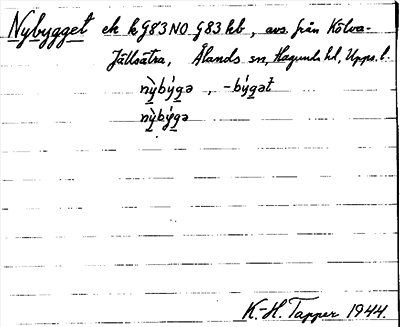 Nybygget ek k G83NO G83 hb, avs. från Kölva-
Jällsätra, Ålands sn, Hagunda hd, Upps. l.
nỳbýgə, -býgət
nỳbýgə
K.-H. Tapper 1944.